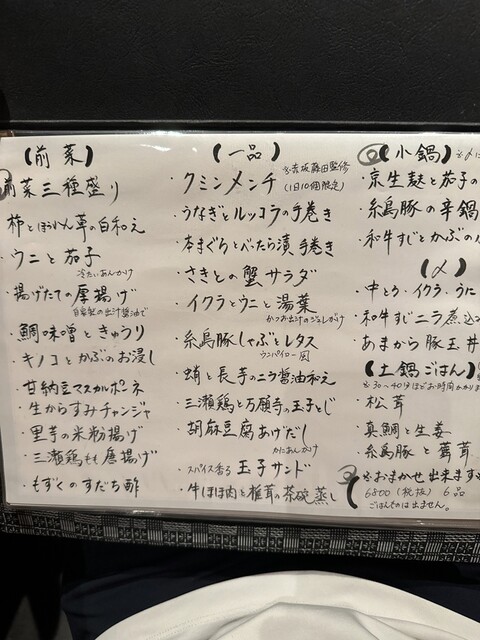 【前菜】
前菜三種盛り
柿とほうれん草の白和え
・ウニと茄子
冷たいあんかけ
・揚げたての厚揚げ
自家製の出汁醤油で
・鯛味噌ときゅうり
・キノコとかぶのお浸し
・甘納豆マスカルポーネ
・生からすみチャンジャ
・里芋の米粉揚げ
・三瀬鶏もも唐揚げ
・もずくのすだち酢
【一品】
・クミンメンチ
※赤坂藤田監修
(1日10個限定)
・うなぎとルッコラの手巻き
・本まぐろとべったら漬手巻き
・さきとの蟹サラダ
・イクラとウニと湯葉
かつお出汁のジュレがけ
・糸島豚しゃぶとレタス
ウンパイロー風
・蛸と長芋のニラ醤油和え
・三瀬鶏と万願寺の玉子とじ
・胡麻豆腐あげだし
かにあんかけ
・スパイス香る玉子サンド
・牛ほほ肉と椎茸の茶碗蒸し
【小鍋】
・京生麩と茄子の
・糸島豚の辛鍋
・和牛すじとかぶの
【〆】
・中とろ・イクラ・うに
・和牛すじニラ煮込
・あまから豚玉丼
【土鍋ごはん】
※30～40分ほどお時間かかりま
・松茸
・真鯛と生姜
・糸島豚と舞茸
※おまかせ出来ます
6800(税抜) 6品
ごはんものは出ません。